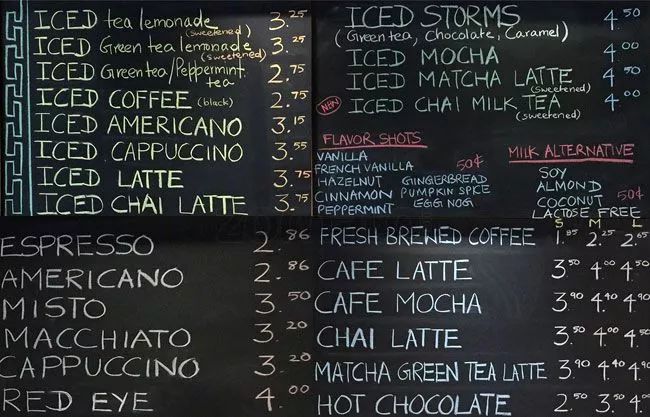 ICED tea lemonade (sweetened) 3.25
ICED Green tea lemonade (sweetened) 3.25
ICED Green tea/Peppermint tea 2.75
ICED COFFEE (black) 2.75
ICED AMERICANO 3.15
ICED CAPPUCCINO 3.55
ICED LATTE 3.75
ICED CHAI LATTE 3.75
ICED STORMS 4.50
(Green tea, Chocolate, Caramel)
ICED MOCHA 4.00
ICED MATCHA LATTE (sweetened) 4.50
NEW ICED CHAI MILK TEA (sweetened) 4.00
FLAVOR SHOTS
50¢
VANILLA
FRENCH VANILLA
HAZELNUT GINGERBREAD
CINNAMON PUMPKIN SPICE
PEPPERMINT EGG NOG
MILK ALTERNATIVE
SOY
ALMOND
COCONUT 50¢
LACTOSE FREE
ESPRESSO 2.86
AMERICANO 2.86
MISTO 3.50
MACCHIATO 3.20
CAPPUCCINO 3.20
RED EYE 4.00
S M L
FRESH BREWED COFFEE 1.85 2.25 2.65
CAFE LATTE 3.50 4.00 4.50
CAFE MOCHA 3.90 4.40 4.90
CHAI LATTE 3.50 4.00 4.50
MATCHA GREEN TEA LATTE 3.90 4.40 4.90
HOT CHOCOLATE 2.50 3.50 4.00